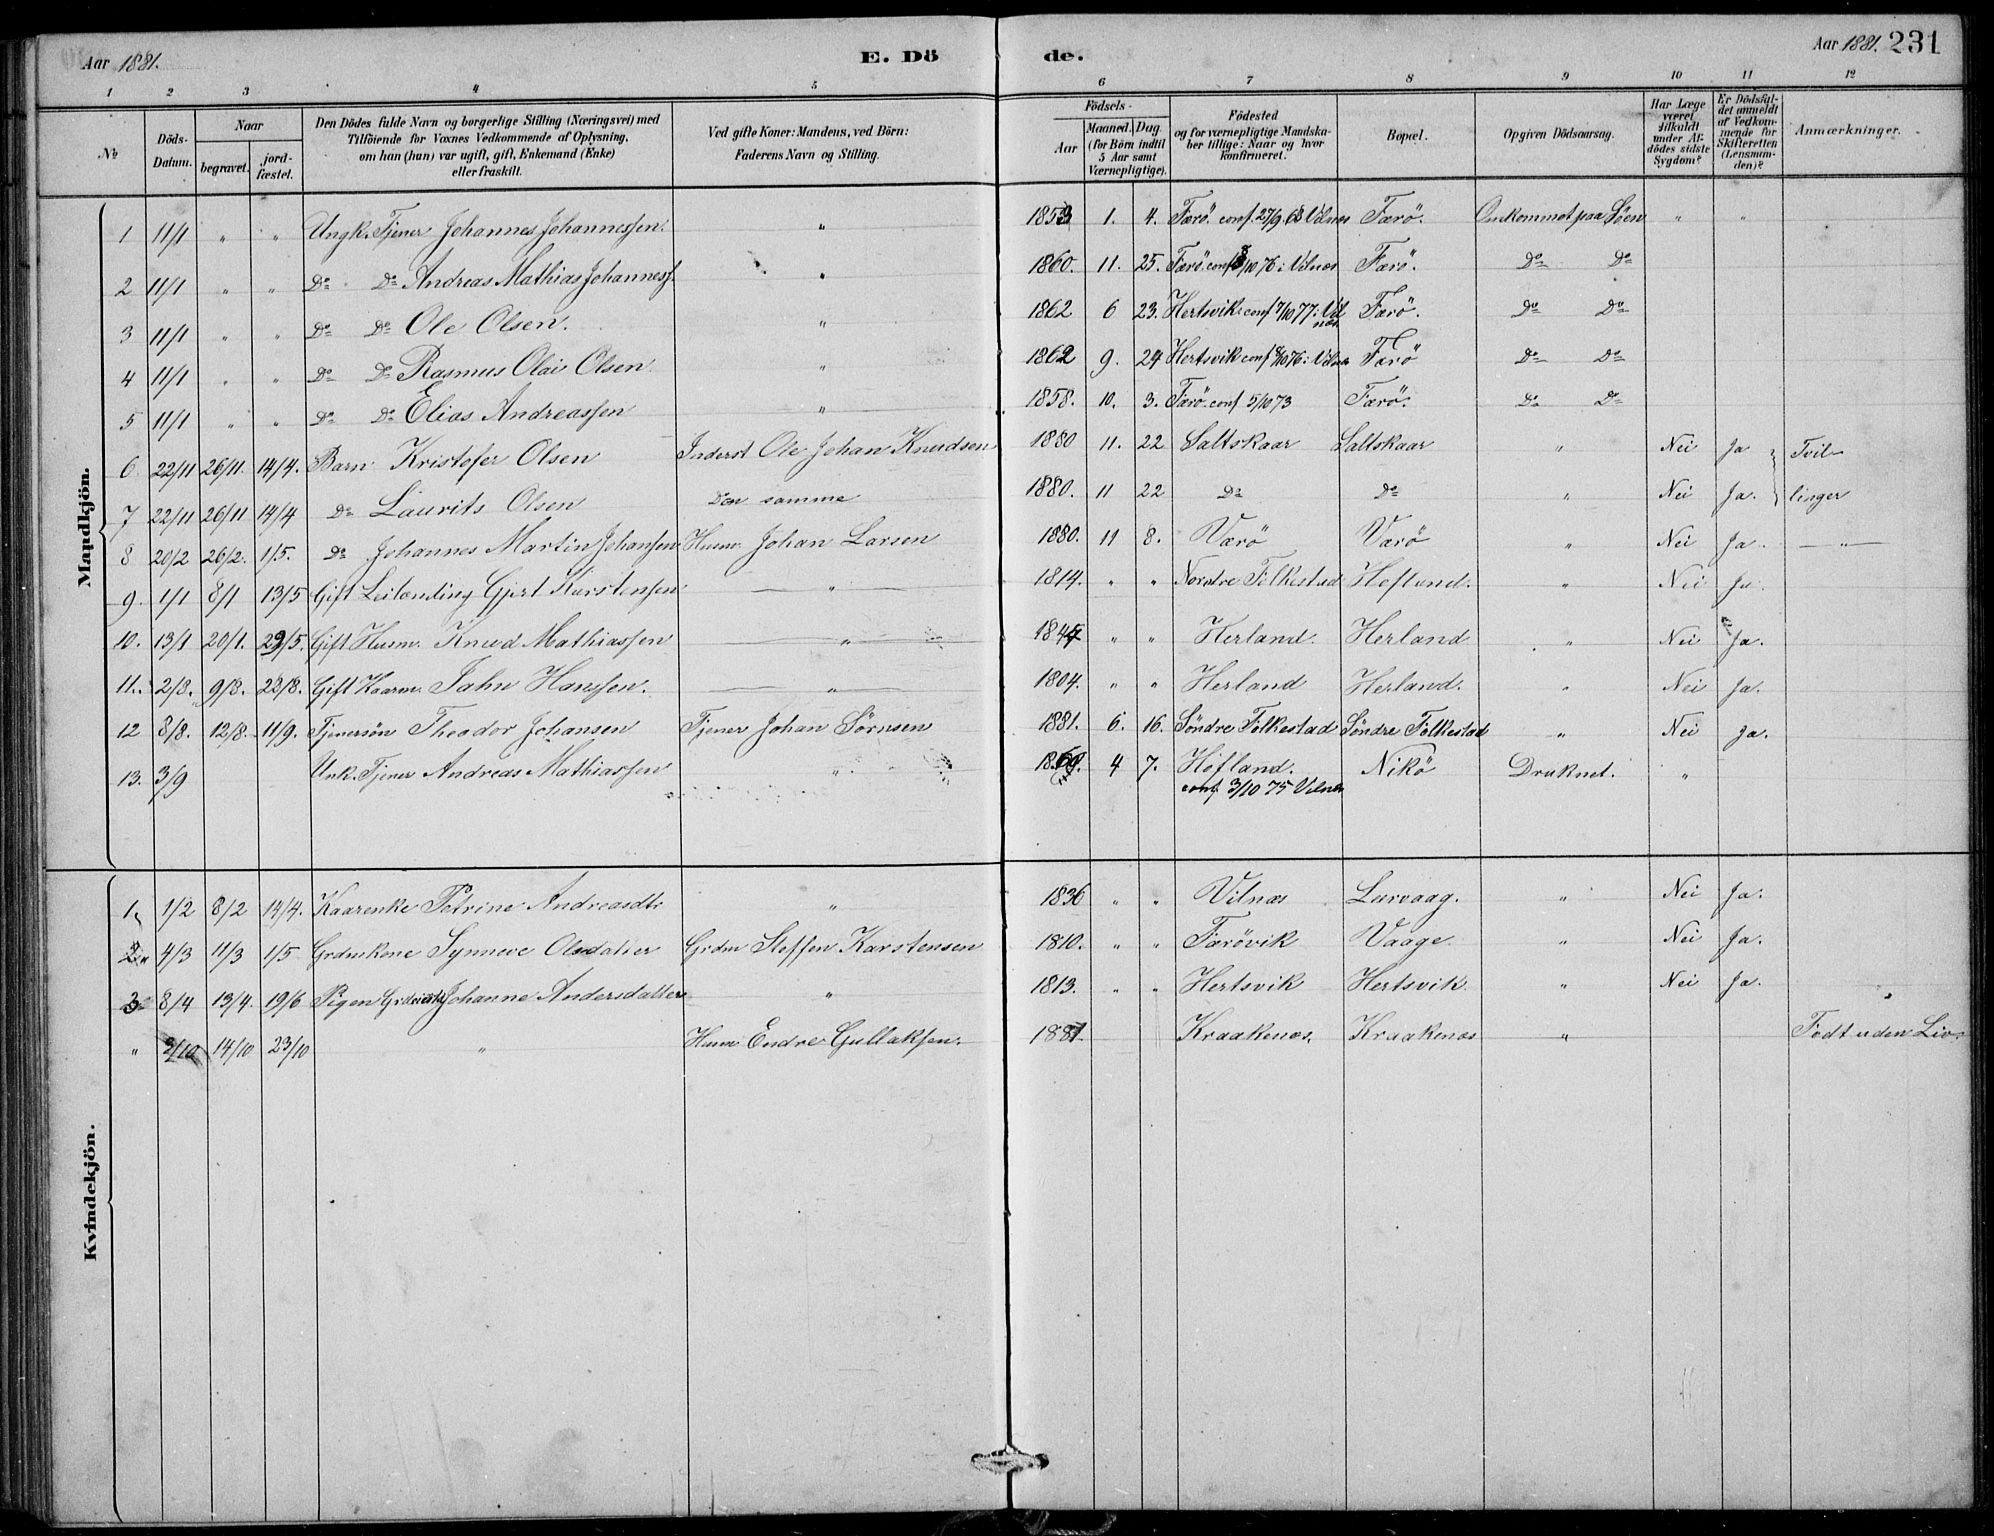 Aar 1881. E. Dö de. Aar 1881. 231
1 2 3 4 5 6 7 8 9 10 11 12
No
Döds-Datum.
Naar
begravet.
jord-fæstet.
Den Dödes fulde Navn og borgerlige Stilling (Næringsvei) med
Tilföiende for Voxnes Vedkommende af Oplysning,
om han (hun) var ugift, gift, Enkemand (Enke)
eller fraskilt.
Ved gifte Koner: Mandens, ved Börn:
Faderens Navn og Stilling.
Födsels-
Aar
Maaned. Dag.
(for Börn indtil
5 Aar samt
Værnepligtige).
Födested
og for værnepligtige Mandska-
ber tillige: Naar og hvor
konfirmeret.
Bopæl.
Opgiven Dödsaarsag.
Har Læge
været
tilkaldt
under Af-
dödes sidste
Sygdom?
Er Dödsfal-
det anmeldt
af Vedkom-
mende for
Skifteretten
(Lensman-
den)?
Anmærkninger.
Mandkjön.
1 11/1 " " Ungk. Tjener Johannes Johannessen. " 1853 1. 4. Færö conf. 27/9 68 Vilnes Færö. Omkommet paa Söen " "
2 11/1 " " Do Do Andreas Mathias Johannesf. " 1860. 11. 25. Færö conf 8/10 76 i Vilnes Færö. Do Do
3 11/1 " " Do Do Ole Olsen. " 1862 6 23. Hertsvik conf 7/10 77 i Vilnæs Færö. Do Do
4 11/1 " " Do Do Rasmus Olai Olsen " 1862 9. 24 Hertsvik conf 8/10 76 i Vilnæs Færö Do Do
5 11/1 " " Do Do Elias Andreassen " 1858. 10. 3. Færö conf 5/10 73 Færö. Do Do
6. 22/11 26/11. 14/4. Barn Kristofer Olsen Inderst Ole Johan Knudsen 1880 11. 22 Saltskaar Saltskaar " Nei Ja Tvil-
7 22/11 26/11 14/4 Do Laurits Olsen Den samme 1880. 11 22 Do Do " Nei Ja. linger
8 20/2 26/2. 1/5. Do Johannes Martin Johansen Husm. Johan Larsen 1880. 11 8. Værö Værö " Nei Ja. "
9. 1/1 8/1 13/5 Gift Leilænding Gjert Karstensen " 1814. " " Nordre Folkestad Hofland. " Nei Ja.
10. 13/1 20/1. 29/5. Gift Husm. Knud Mathiassen " 1844 " " Herland. Herland " Nei Ja.
11. 2/8. 9/8. 28/8. Gift Kaarm. Jahn Hanssen. " 1804. " " Herland Herland. " Nei Ja.
12 8/8. 12/8. 11/9. Tjenersön Theodor Johansen Tjener Johan Sörnsen 1881. 6. 16. Söndre Folkestad Söndre Folkestad " Nei Ja.
13. 3/9 Unk. Tjener Andreas Mathiassen " 1860. 4 7. Höfland. Nikö Druknet. "
conf 3/10 75 Vilnes
Kvindekjön.
1. 1/2 8/2 14/4. Kaarenke Petrine Andreasdtr " 1836 " " Vilnæs Larvaag. " Nei Ja.
2 4/3 11/3 1/5 Grdmkone Synneve Olsdatter Grdm Steffen Karstensen 1810. " " Færövik Vaage. " Nei Ja.
3 8/4 13/4. 19/6 Pigen Johanne Andersdatter " 1813. " " Hertsvik Hertsvik. " Nei Ja.
" 9/10 14/10 23/10 " Husm Endre Gullaksen. 1881 Kraakenæs. Kraakenæs " Födt uden Liv.